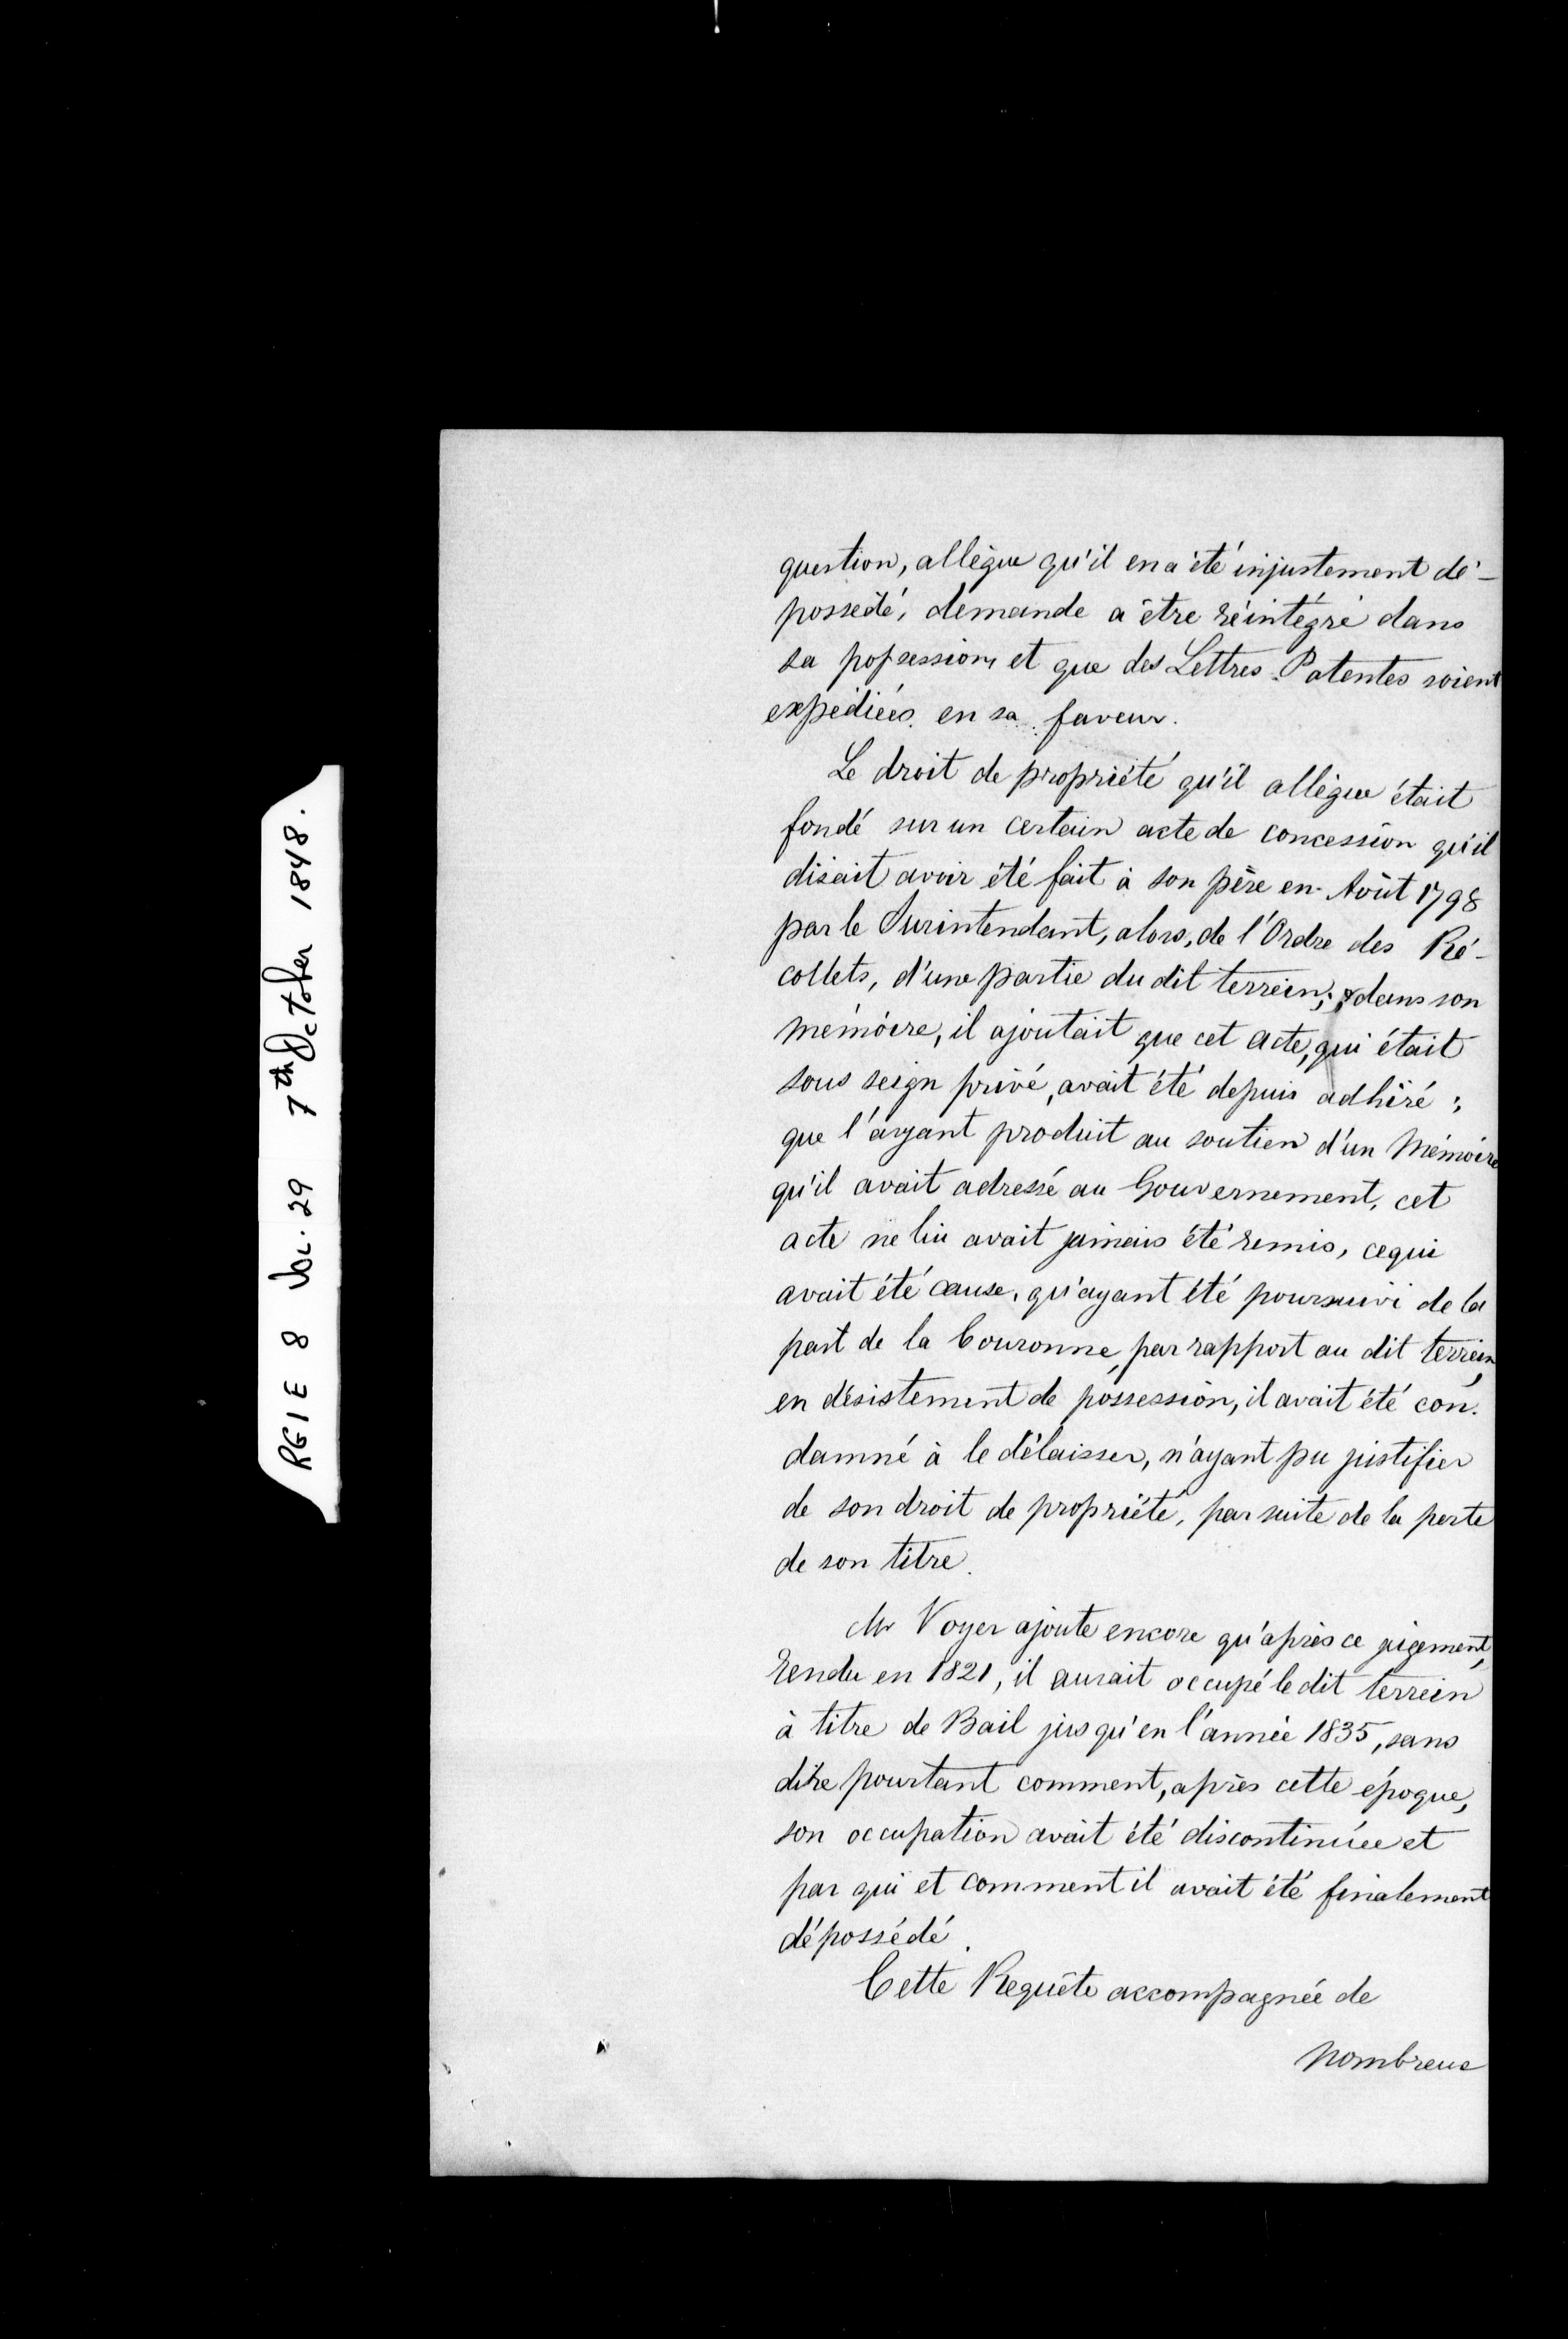 RG1 E 8 Vol. 29 7th October 1848.
question, allègue qu'il en a été injustement dé-
possédé, demande a être réintégré dans
sa possession et que des Lettres-Patentes soient
expédiées en sa faveur.
Le droit de propriété qu'il allègue était
fondé sur un certain acte de concession qu'il
disait avoir été fait à son père en Août 1798
par le Surintendant, alors, de l'Ordre des Ré-
collets, d'une partie du dit terrein; & dans son
mémoire, il ajoutait que cet acte, qui était
sous seign privé, avait été depuis adhiré;
que l'ayant produit au soutien d'un Mémoire
qu'il avait adressé au Gouvernement, cet
acte ne lui avait jamais été remis, cequi
avait été cause, qu'ayant été poursuivi de la
part de la Couronne, par rapport au dit terrein,
en désistement de possession, il avait été con-
damné à le délaisser, n'ayant pu justifier
de son droit de propriété, par suite de la perte
de son titre.
Mr Voyer ajoute encore qu'après ce jugement,
rendu en 1821, il aurait occupé le dit terrein
à titre de Bail jusqu'en l'année 1835, sans
dire pourtant comment, après cette époque,
son occupation avait été discontinuée et
par qui et comment il avait été finalement
dépossédé.
Cette Requête accompagnée de
nombreux